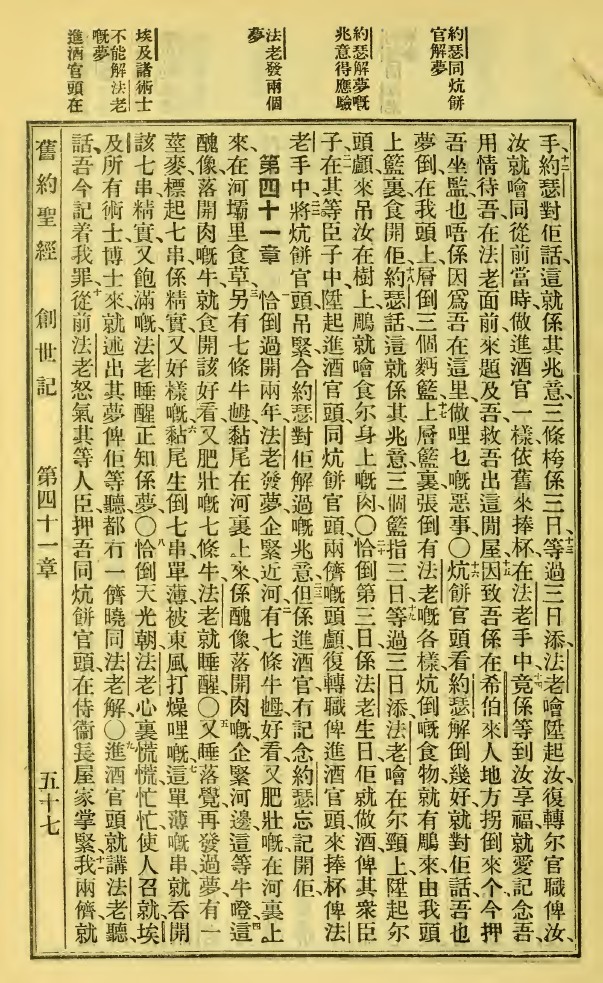 約瑟同炕餅
官解夢
約瑟解夢嘅
兆意得應驗
法老發兩個
夢
埃及諸術士
不能解法老
嘅夢
進酒官頭在
手、十二約瑟對佢話、這就係其兆意、三條桍係三日、十三等過三日添、法老噲陞起汝、復轉尔官職俾汝、
汝就噲同從前當時、做進酒官一樣、依舊來捧杯在法老手中、十四竟係等到汝享福、就愛記念吾、
用情待吾、在法老面前來題及吾、救吾出這間屋、十五因致吾係在希伯來人地方拐倒來、个今押
吾坐監也唔係因爲吾在這里做哩乜嘅惡事〇十六炕餅官頭看約瑟解倒幾好、就對佢話、吾也
夢倒在我頭上、層倒三個籃、十七上層籃裏張倒有法老嘅各樣炕倒嘅食物、就有鵰來由我頭
上籃裏食開佢、十八約瑟話、這就係其兆意、三個籃指三日、十九等過三日添、法老噲在尔頸上、陞起尔
頭顱來吊汝在樹上、鵰就噲食尔身上嘅肉〇二十恰倒第三日、係法老生日、佢就做酒俾其衆臣
子、在其等臣子中、陞起進酒官頭同炕餅官頭、兩儕嘅頭顱、二一復轉職俾進酒官頭、來捧杯俾法
老手中、二二將炕餅官頭吊緊、合約瑟對佢解過嘅兆意、二三但係進酒官冇記念約瑟、忘記開佢、
第四十一章 恰倒過開兩年、法老發夢、企緊近河、二有七條牛乸好看又肥壯嘅、在河裏上
來、在河壩里食草、三另有七條牛乸黏尾在河裏上來、係醜像落開肉嘅、企緊河邊這等牛磴、四這
醜像落開肉嘅牛、就食開該好看又肥壯嘅七條牛、法老就睡醒〇五又睡落覺、再發過夢、有一
莖麥標起七串、係精實又好樣嘅、六黏尾生倒七串單薄、被東風打燥哩嘅、七這單薄嘅串、就吞開
該七串精實又飽滿嘅、法老睡醒、正知係夢〇八恰倒天光朝、法老心裏慌慌忙忙、使人召就埃
及所有術士博士來、就述出其夢俾佢等聽、都冇一儕曉同法老解〇九進酒官頭就講法老聽、
話、吾今記着我罪、十從前法老怒氣其等人臣、押吾同炕餅官頭、在侍衞長屋家掌緊、十一我兩儕就
舊約聖經 創世記 第四十一章 五十七